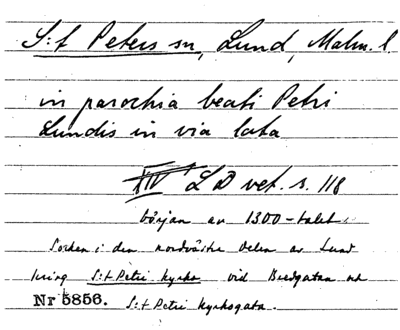 S:t Peters sn, Lund, Malm. l.
in parochia beati Petri
Lundis in via lata
XIV LD vet. s. 118
början av 1300-talet.
Socken i den nordvästra delen av Lund
kring S:t Petri kyrka vid Bredgatan och
Nr 5856. S:t Petri kyrkogata.